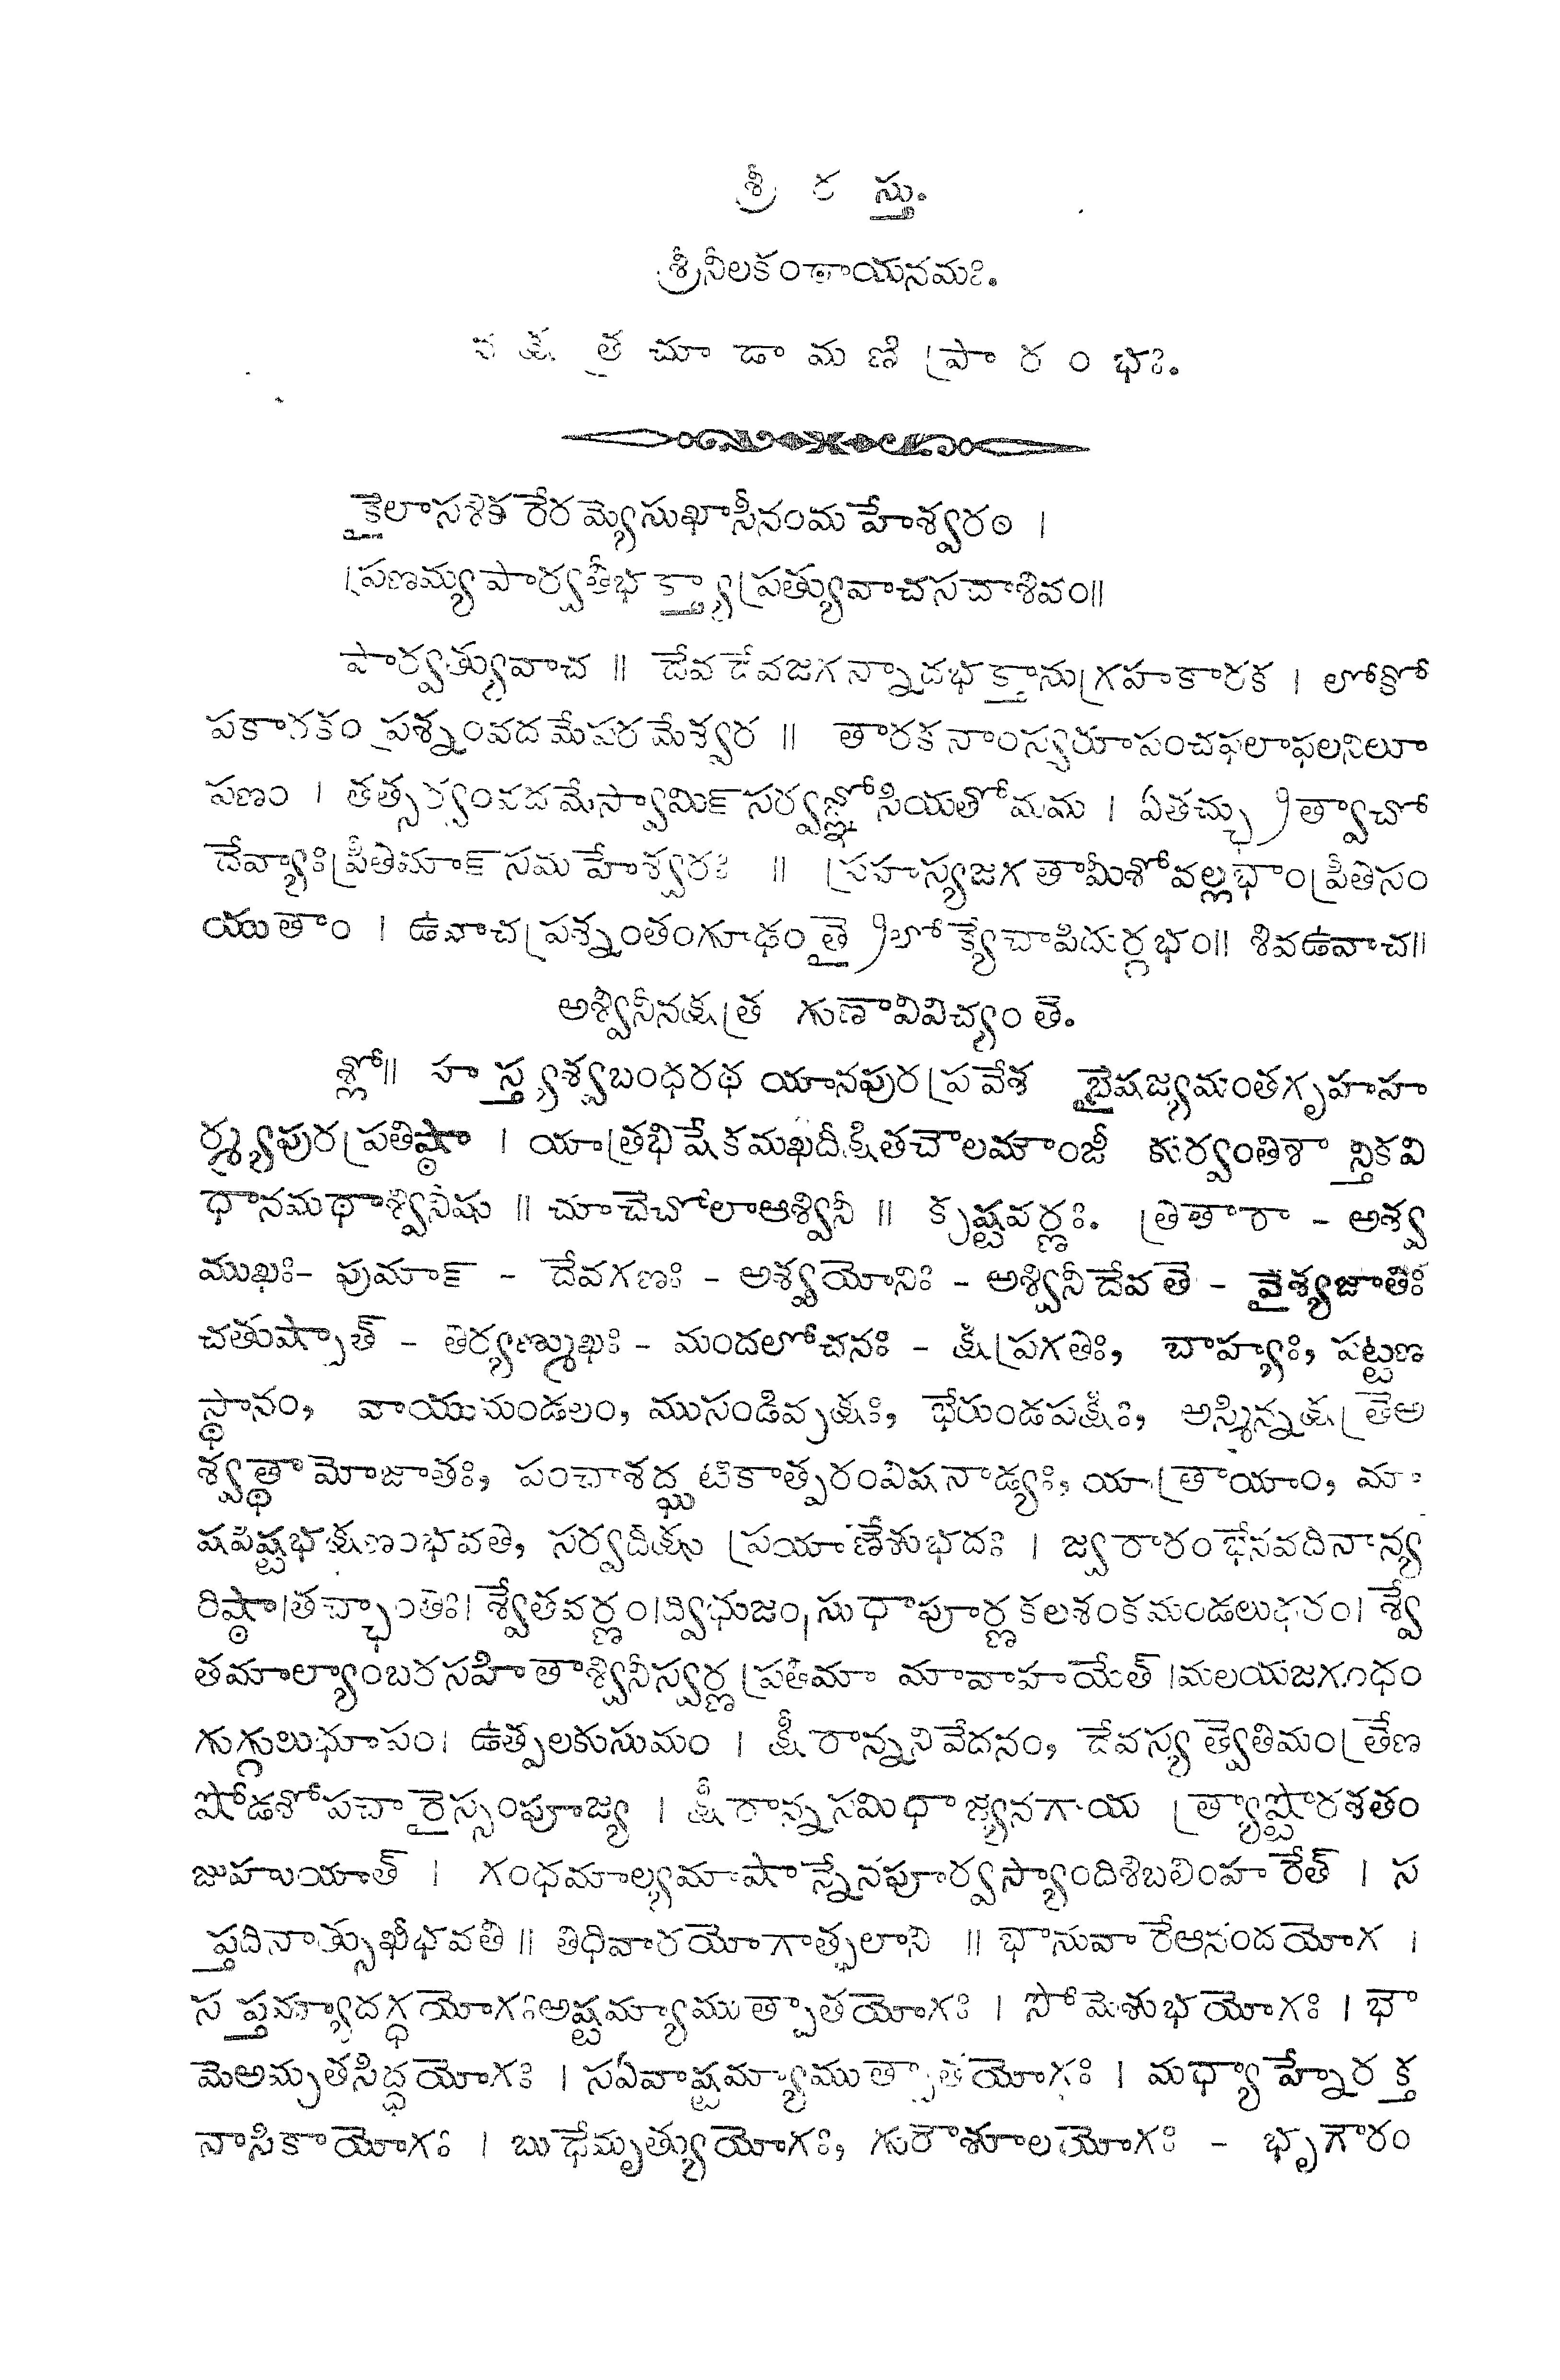 శ్రీ ర స్తు.
శ్రీనీలకంఠాయనమః.
న క్ష త్ర చూ డా మ ణి ప్రా ర ం భః.
కైలాసశిఖరేరమ్యేసుఖాసీనంమహేశ్వరం ।
ప్రణమ్యపార్వతీభక్త్యాప్రత్యువాచసదాశివం॥
పార్వత్యువాచ ॥ దేవదేవజగన్నాదభక్తానుగ్రహకారక । లోకో
పకారకం ప్రశ్నంవదమేపరమేశ్వర ॥ తారకనాంస్వరూపంచఫలాఫలనిలూ
పణం । తత్సర్వంవదమేస్వామిన్ సర్వజ్ఞోసియతోమమ । ఏతచ్ఛ్రుత్వాచో
దేవ్యాఃప్రీతిమాన్ సమహేశ్వరః ॥ ప్రహస్యజగతామీశోవల్లభాంప్రీతిసం
యుతాం । ఉవాచప్రశ్నంతంగూఢంత్రైలోక్యేచాపిదుర్లభం॥ శివఉవాచ॥
అశ్వినీనక్షత్ర గుణావివిచ్యంతె.
శ్లో॥ హస్త్యశ్వబంధరథయానపురప్రవేశ భైషజ్యమంతగృహహ
ర్మ్యపురప్రతిష్ఠా । యాత్రభిషేకమఖదీక్షితచౌలమౌంజీ కుర్వంతిశాన్తికవి
ధానమథాశ్వినీషు ॥ చూచేచోలాఆశ్వినీ ॥ కృష్టవర్ణః. త్రితారా - అశ్వ
ముఖః- పుమాన్ - దేవగణః - అశ్వయోనిః - అశ్వినీదేవతె - వైశ్యజాతిః
చతుష్పాత్ - తిర్యఙ్ముఖః - మందలోచనః - క్షిప్రగతిః, చాహ్యః, పట్టణ
స్థానం, వాయుమండలం, ముసండివృక్షః, భేరుండపక్షీః, అస్మిన్నక్షత్రెఅ
శ్వత్థామోజాతః, పంచాశద్ఘటికాత్పరంవిషనాడ్యః, యాత్రాయాం, మా
షపిష్టభక్షణంభవతి, సర్వదిక్షు ప్రయాణేశుభదః । జ్వరారంభేనవదినాన్య
రిష్ఠా।తచ్ఛాంతిః। శ్వేతవర్ణం।ద్విభుజం,సుధాపూర్ణకలశంకమండలుధరం। శ్వే
తమాల్యాంబరసహితాశ్వినీస్వర్ణప్రతిమా మావాహయేత్ ।మలయజగంధం
గుగ్గులుధూపం। ఉత్పలకుసుమం । క్షీరాన్ననివేదనం, దేవస్యత్వెతిమంత్రేణ
షోడశోపచారైస్సంపూజ్య । క్షీరాన్నసమిధాజ్యనగాయ త్ర్యాష్టోరశతం
జుహుయాత్ । గంధమాల్యమాషాన్నేనపూర్వస్యాందిశిబలింహరేత్ । స
ప్తదినాత్సుఖీభవతీ ॥ తిధివారయోగాత్ఫలాని ॥ భానువారేఆనందయోగ ।
సప్తమ్యాదగ్ధయోగఃఅష్టమ్యాముత్పాతయోగః । సోమేశుభయోగః । భౌ
మెఅమృతసిద్ధయోగః । సఏవాష్టమ్యాముత్పాతయోగః । మధ్యాహ్నేరక్త
నాసికాయోగః । బుధేమృత్యుయోగః, గురౌశూలయోగః - భృగౌరం